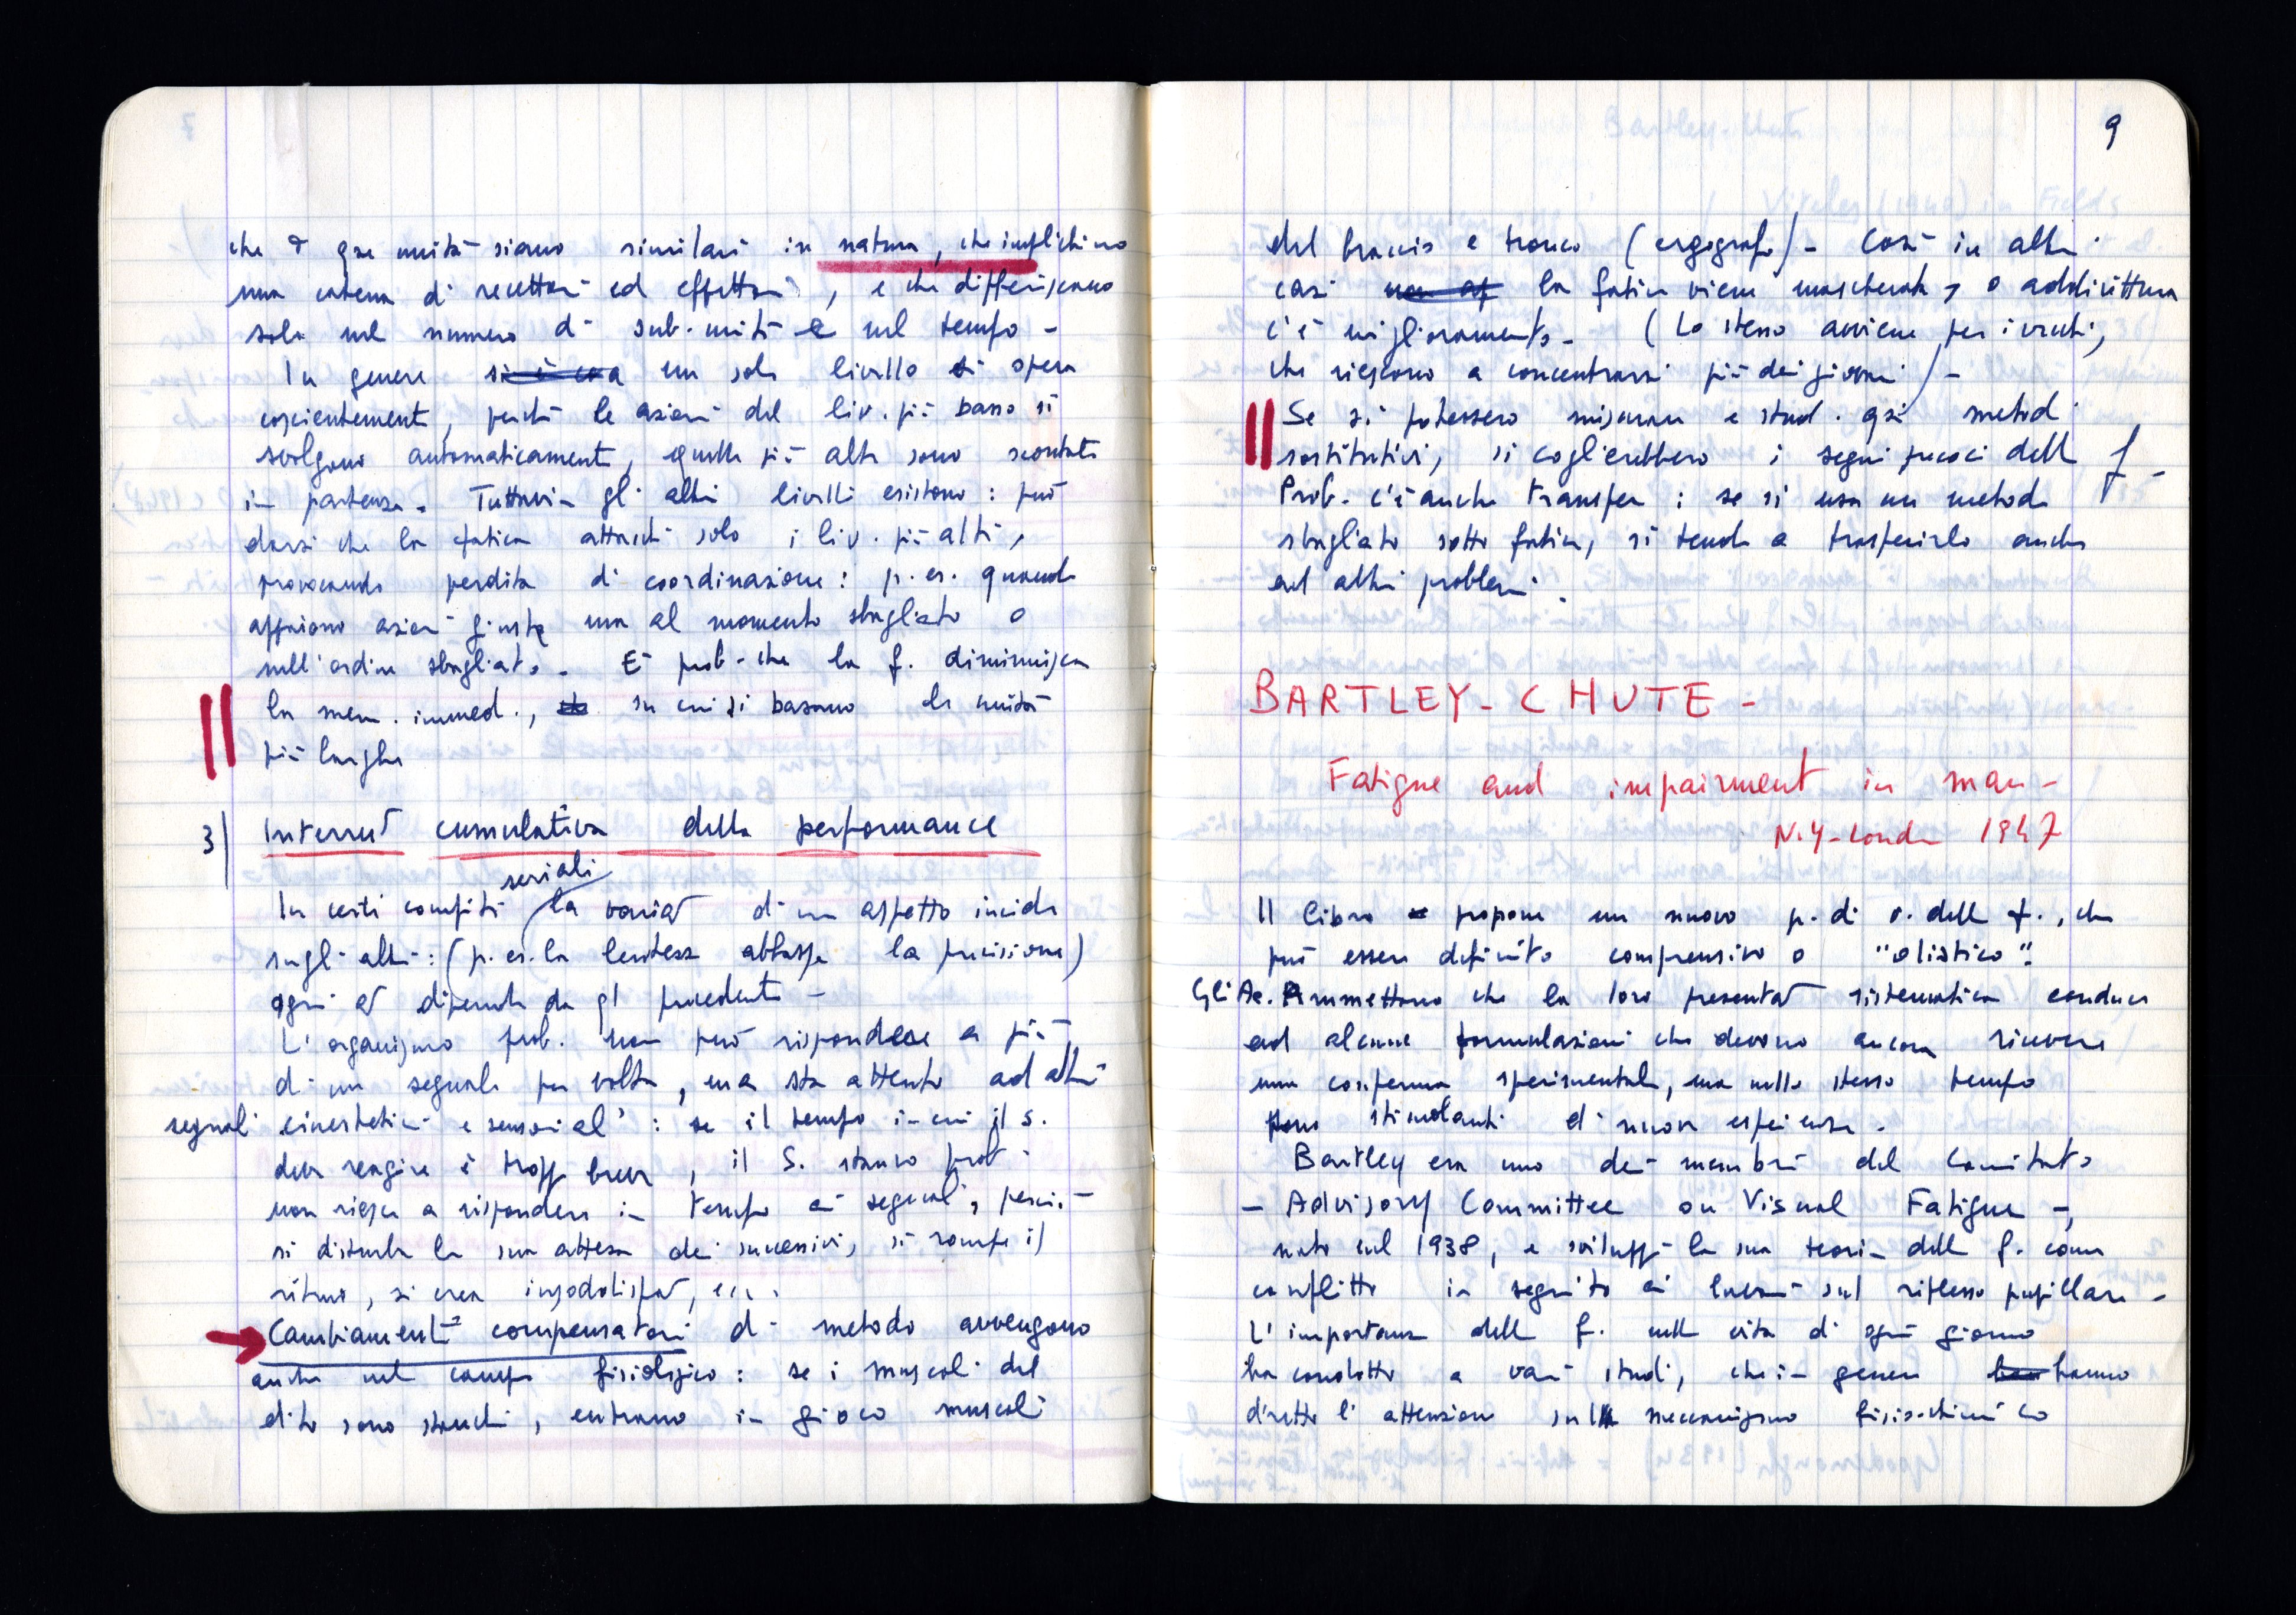 che qse unità siano similari in natura, che implichino
una catena di recettori ed effettori, e che differiscano
solo nel numero di sub-unità e nel tempo -
In genere a un solo livello si opera
coscientemente, perché le azioni del liv. più basso si
svolgono automaticamente, quelle più alte sono scontate
in partenza. Tuttavia gli altri livelli esistono: può
darsi che la fatica attacchi solo i liv. più alti,
provocando perdita di coordinazione: p. es. quando
appaiono azioni giuste ma al momento sbagliato o
nell'ordine sbagliato. È prob. che la f. diminuisca
la mem. immed., su cui si basano le unità
più larghe
3) Interruz cumulativa della performance
In certi compiti seriali la variaz di un aspetto incide
sugli altri: (p. es. la lentezza abbassa la precisione)
ogni az dipende da gl precedenti -
L'organismo prob. non può rispondere a più
di un segnale per volta, ma sta attento ad altri
segnali cinestetici e sensoriali: se il tempo in cui il s.
deve reagire è troppo breve, il S. stanco prob
non riesce a rispondere in tempo ai segnali, perciò
si disturba la sua attesa dei successivi, si rompe il
ritmo, si crea insoddisfaz, ecc.
Cambiamenti compensatori di metodo avvengono
anche nel campo fisiologico: se i muscoli del
dito sono stanchi, entrano in gioco muscoli
9
del braccio e tronco (ergografo) - Così in altri
casi la fatica viene mascherata, o addirittura
c'è miglioramento. (Lo stesso avviene per i vecchi,
che riescono a concentrarsi più dei giovani) -
Se si potessero misurare e stud. qsi metodi
sostitutivi, si coglierebbero i segni precoci della f -
Prob. c'è anche transfer: se si usa un metodo
sbagliato sotto fatica, si tende a trasferirlo anche
ad altri problemi.
BARTLEY - CHUTE -
Fatigue and impairment in man -
N.Y-London 1947
Il libro propone un nuovo p. di v. della f., che
può essere definito comprensivo o "olistico".
Gli Aa. Ammettono che la loro presentaz sistematica conduce
ad alcune formulazioni che devono ancora ricevere
una conferma sperimentale, ma nello stesso tempo
sono stimolanti di nuove esperienze.
Bartley era uno dei membri del Comitato
- Advisory Committee on Visual Fatigue -,
nato nel 1938, e sviluppò la sua teoria della f. come
conflitto in seguito ai lavori sul riflesso pupillare -
L'importanza della f. nella vita di ogni giorno
ha condotto a vari studi, che in genere hanno
diretto l'attenzione sul meccanismo fisiochimico